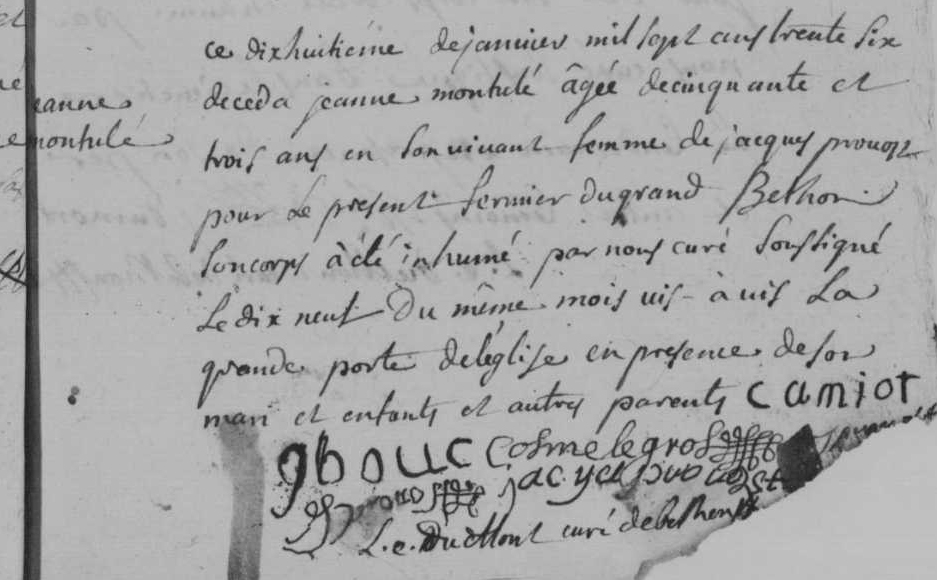 et
jeanne
montulé
ce dixhuitiéme de janvier mil sept cens trente six
deceda jeanne montulé âgée de cinquante et
trois ans en son vivant femme de jacques provost
pour le present fermier du grand Bethon
son corps à été inhumé par nous curé soussigné
Le dix neuf Du même mois vis-à-vis La
grande porte de l'église en presence de son
mari et enfants et autres parents camiot
gbouc cosme legros
jacques provost
L. e. Du Mont curé de bethon